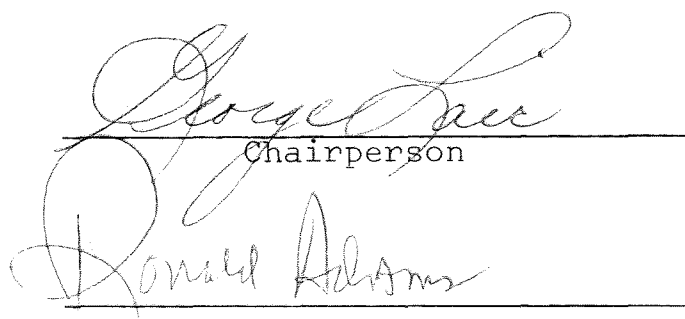 George
Chairperson
Ronald Adams